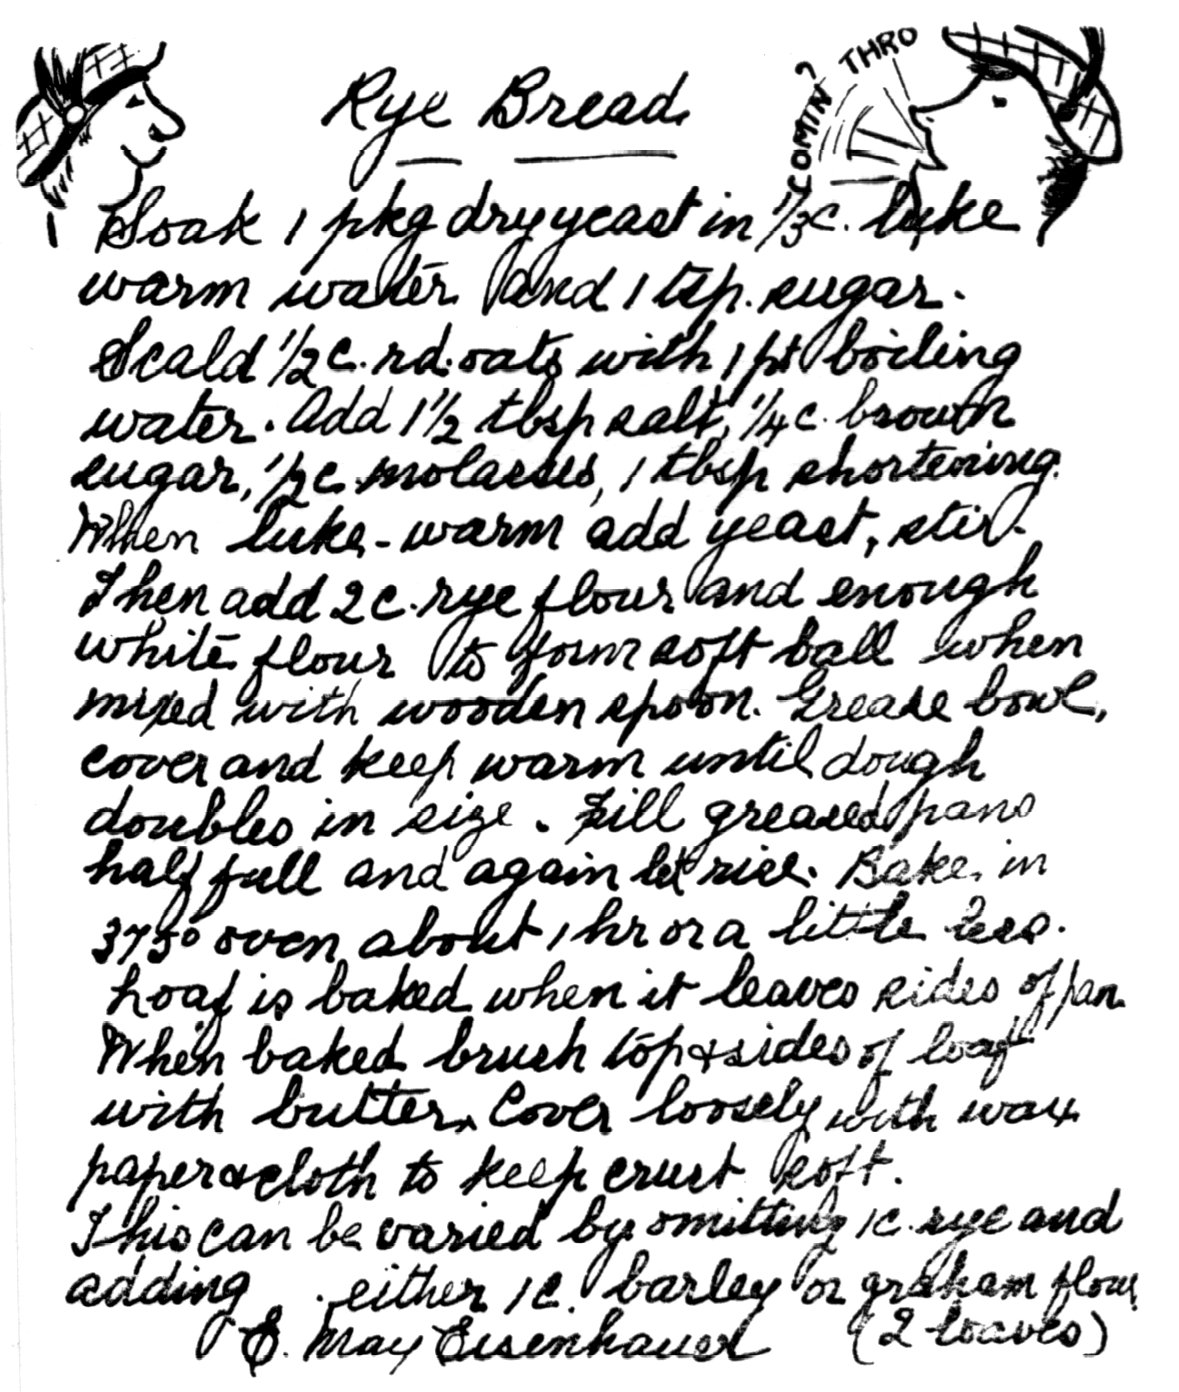 Rye Bread
COMIN' THRO
Soak 1 pkg dry yeast in 1/3 c. luke
warm water and 1 tsp. sugar.
Scald 1/2 c. rd. oats with 1 pt boiling
water. Add 1 1/2 tbsp salt, 1/4 c. brown
sugar, 1/2 c. molasses, 1 tbsp shortening.
When luke-warm add yeast, stir.
Then add 2 c. rye flour and enough
white flour to form soft ball when
mixed with wooden spoon. Grease bowl,
cover and keep warm until dough
doubles in size. Fill greased pans
half full and again let rise. Bake in
375° oven about 1 hr or a little less.
Loaf is baked when it leaves sides of pan.
When baked brush top & sides of loaf
with butter. Cover loosely with wax
paper & cloth to keep crust soft.
This can be varied by omitting 1 c. rye and
adding either 1 c. barley or graham flour
E. May Eisenhauer (2 loaves)